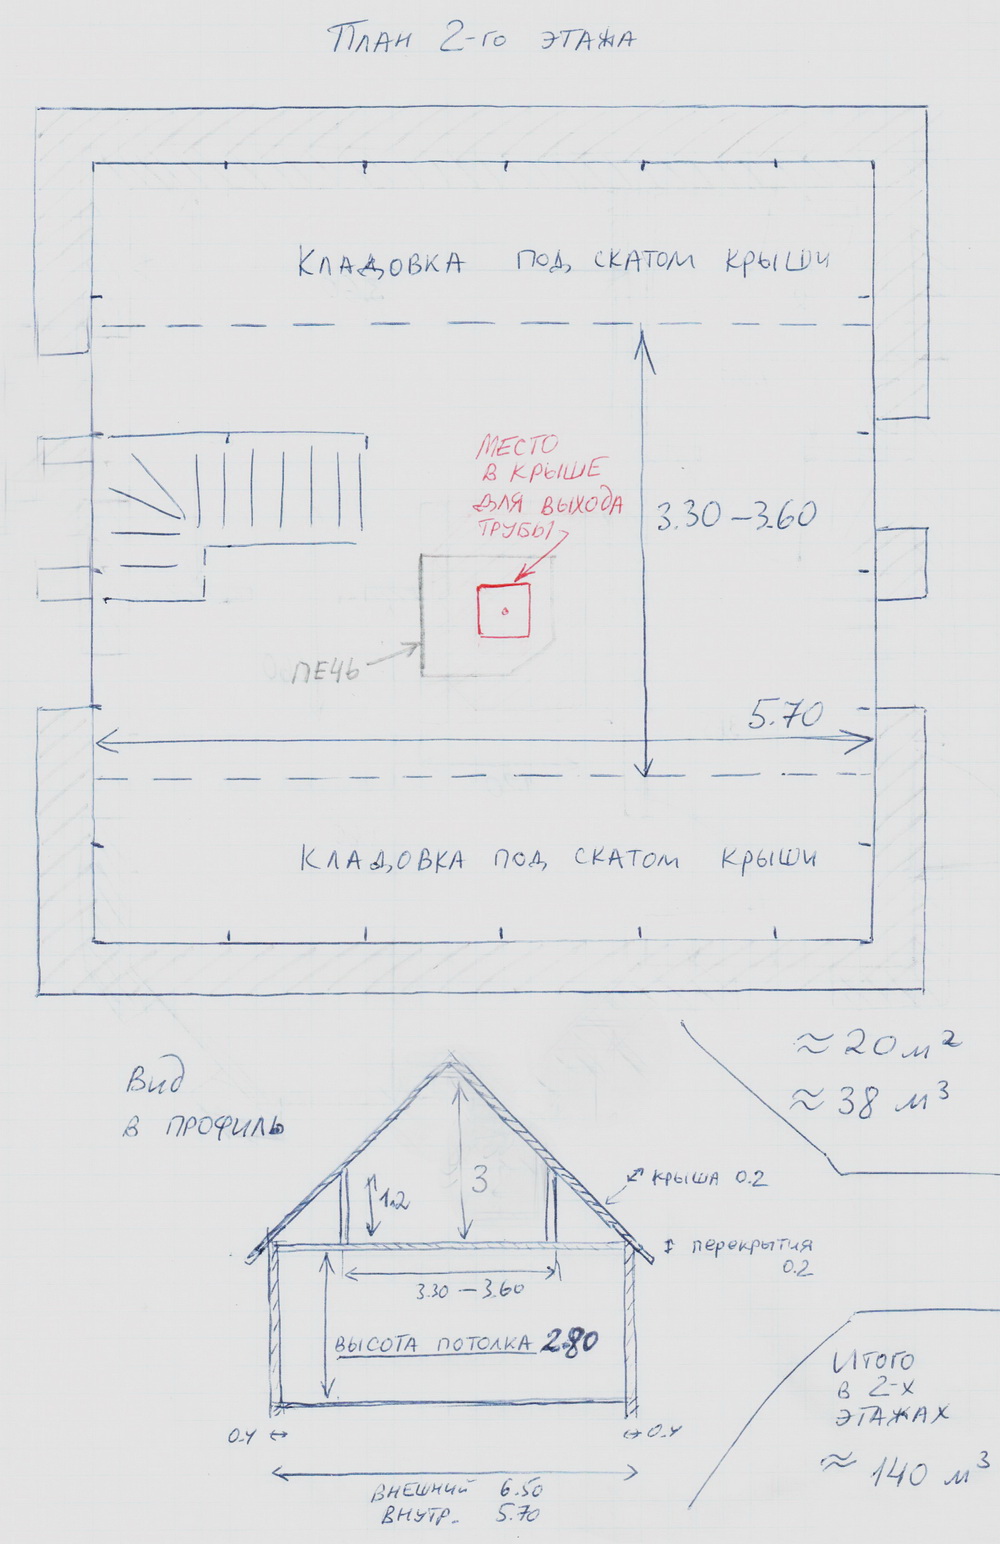 План 2-го этажа
Кладовка под скатом крыши
место
в крыше
для выхода
трубы
3.30 – 3.60
печь
5.70
Кладовка под скатом крыши
≈ 20 м²
≈ 38 м³
Вид
в профиль
3
1.2
крыша 0.2
перекрытия
0.2
3.30 – 3.60
высота потолка 2.80
Итого
в 2-х
этажах
≈ 140 м³
0.4
0.4
внешний 6.50
внутр. 5.70